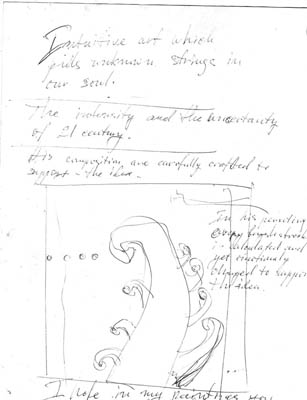 Intuitive art which
pulls unknown strings in
our soul.
The intensity and the uncertanty
of 21 century.
His composition are carefully crafted to
support - the idea.
In his painting
every brushstrok
is calculated and
yet emotionaly
charged to suppor
the idea.
I hope in my paintings you